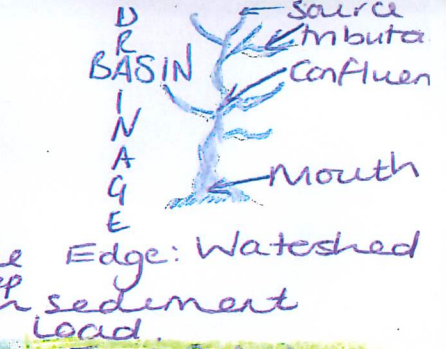 DRAINAGE
BASIN
source
tributa
Confluen
Mouth
Edge: Watershed
sediment
Load.